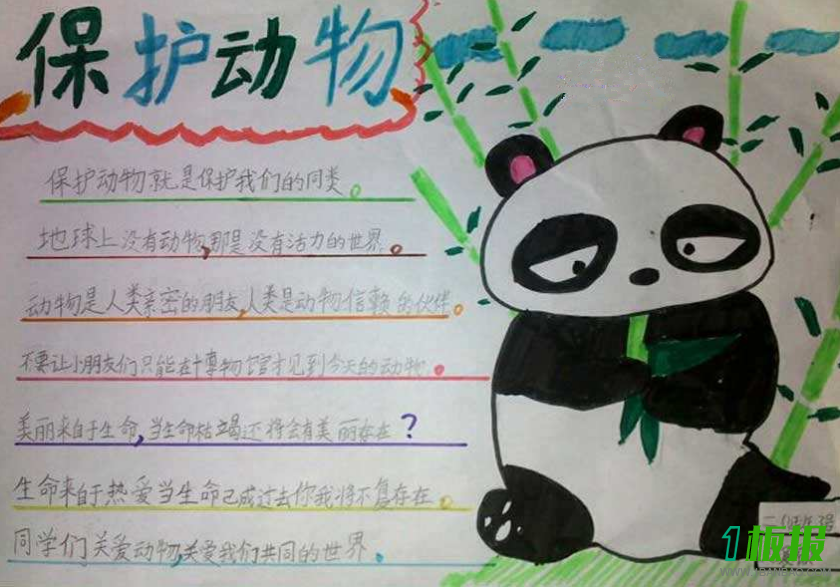 保护动物
保护动物就是保护我们的同类。
地球上没有动物,那是没有活力的世界。
动物是人类亲密的朋友,人类是动物信赖的伙伴。
不要让小朋友们只能在博物馆才见到今天的动物。
美丽来自于生命,当生命枯竭还将会有美丽存在?
生命来自于热爱当生命已成过去你我将不复存在。
同学们关爱动物,关爱我们共同的世界。
1板报